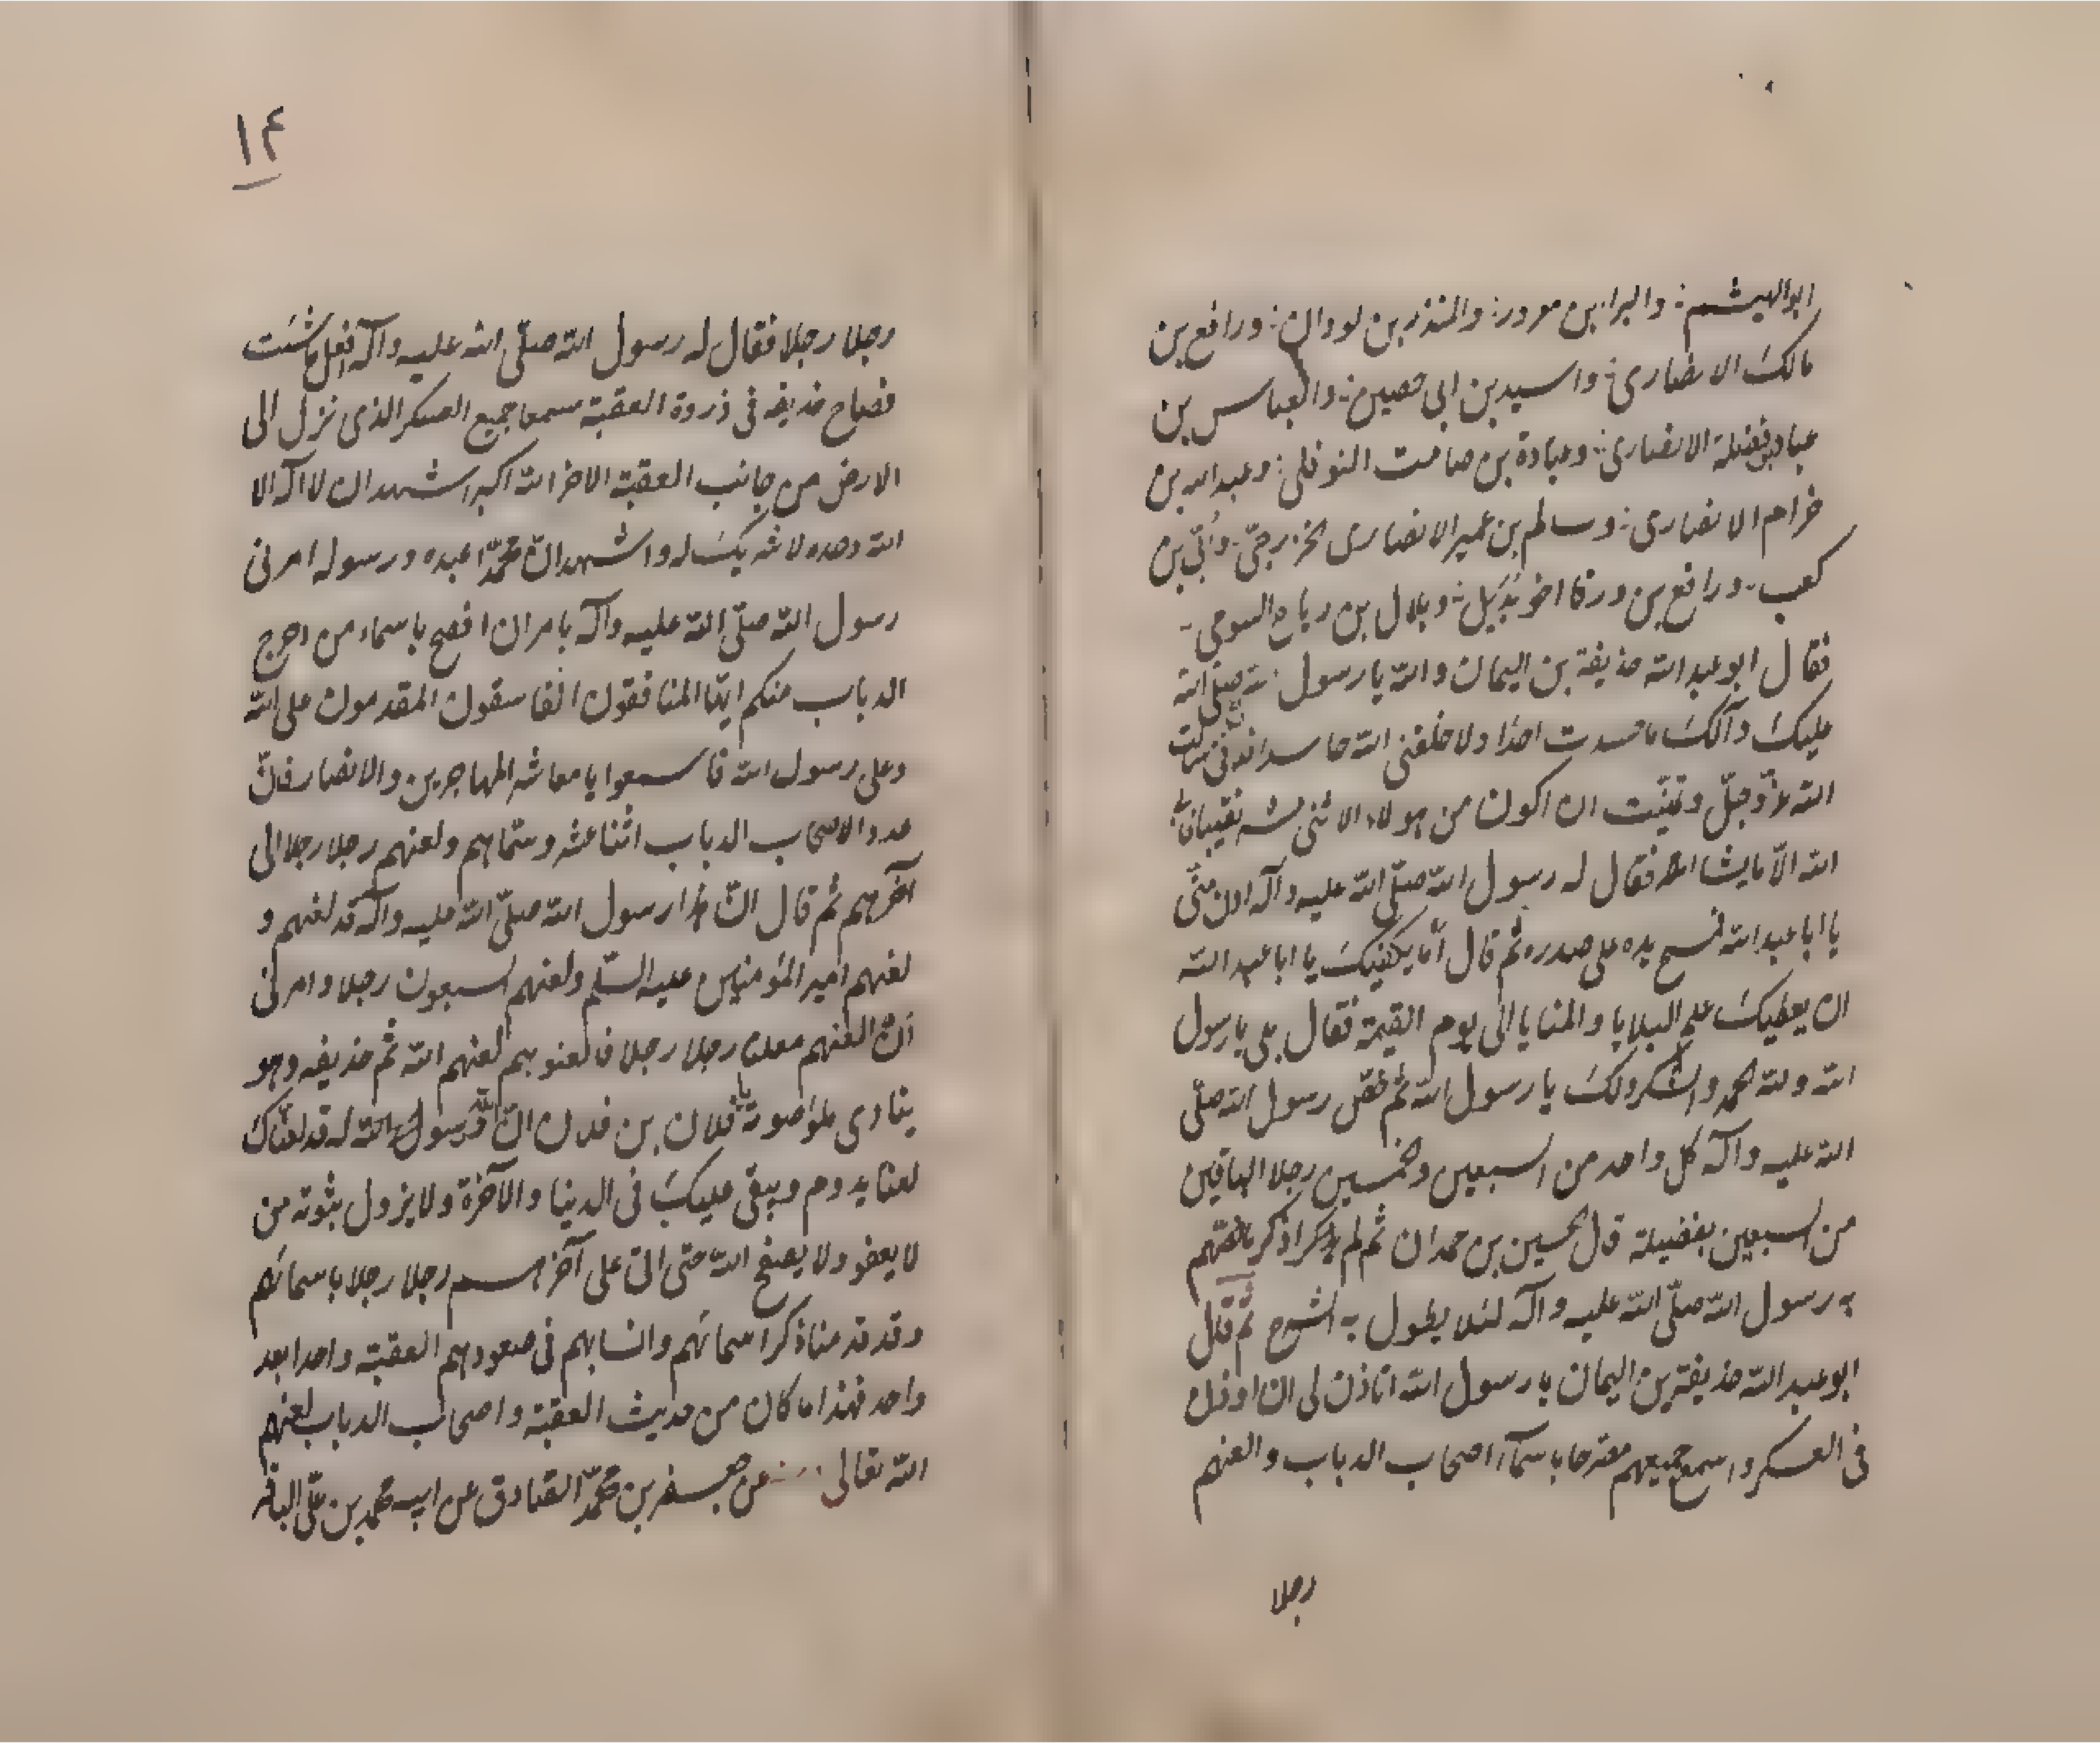 ابو الهيثم: والبرا بن معرور: والمنذر بن لوذان: ورافع بن
مالك الانصارى: واسيد بن ابى حصين: والعباس بن
عباد بن فضلة الانصارى: وعبادة بن صامت النوفلى: وعبد الله بن
خزام الانصارى: وسالم بن عمير الانصارى الخزرجىّ: واُبىّ بن
كعب: ورافع بن ورقا اخو بُدَيل: وبلال بن رباح السوحى:
فقال ابو عبد الله حذيفة بن اليمان والله يا رسول الله صلى الله
عليك وآلك ما حسدت احدًا ولا خلقنى الله حاسدا
الله عزّ وجلّ وتمنّيت ان اكون من هولاء الاثنى عشر نقيبا
الله الّا ما يشا فقال له رسول الله صلّى الله عليه وآله ادن منّى
يا ابا عبد الله فمسح يده على صدره ثم قال امّا يكفيك يا ابا عبد الله
ان يعطيك علم البلايا والمنايا الى يوم القيمة فقال بلى يا رسول
الله ولله الحمد والشكر ولك يا رسول الله ثم فضّل رسول الله صلّى
الله عليه وآله كل واحد من السبعين وخمسين رجلا الباقين
من السبعين بفضيلة قال الحسين بن حمدان ثم لم يذكر اذكر ما فضّلهم
به رسول الله صلّى الله عليه وآله لئلا يطول به الشرح ثم قال
ابو عبد الله حذيفة بن اليمان يا رسول الله اتاذن لى ان ادخل
فى العسكر واسمع جميعهم مصرحا باسمآء اصحاب الدباب والعنهم
رجلا
١٤
رجلا رجلا فقال له رسول الله صلّى الله عليه وآله افعل ما شئت
فصاح حذيفه فى ذروة العقبة مسمعا جميع العسكر الذى نزل الى
الارض من جانب العقبة الاخر الله اكبر اشهد ان لا اله الا
الله وحده لا شريك له واشهد انّ محمّدا عبده ورسوله امرنى
رسول الله صلّى الله عليه وآله بامر ان افصح باسماء من دحرج
الدباب منكم ايّها المنافقون الفاسقون المقدمون على الله
وعلى رسول الله فاسمعوا يا معاشر المهاجرين والانصار فانّ
عدد الاصحاب الدباب اثنا عشر وسمّاهم ولعنهم رجلا رجلا الى
آخرهم ثم قال انّ هذا رسول الله صلّى الله عليه وآله قد لعنهم و
لعنهم امير المؤمنين عليه السّلم ولعنهم السبعون رجلا وامرنى
انّ العنهم معلنا رجلا رجلا فالعنوبهم لعنهم الله ثم حذيفه وهو
ينادى بلو صوته يا فلان بن فلان انّ الله ورسول الله قد لعنّاك
لعنا يدوم ويبقى عليك فى الدينا والآخرة ولا يزول بثوته من
لا يعفو ولا يصفح الله حتى اتى على آخرهم رجلا رجلا باسمائهم
وقد قدمنا ذكر اسمائهم وانسابهم فى صعودهم العقبة واحدا بعد
واحد فهذا ما كان من حديث العقبة واصحاب الدباب لعنهم
الله تعالى عن جعفر بن محمّد الصّادق عن ابيه محمد بن علىّ الباقر